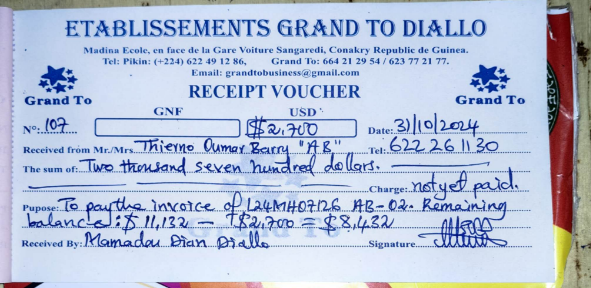 ETABLISSEMENTS GRAND TO DIALLO
Madina Ecole, en face de la Gare Voiture Sangaredi, Conakry Republic de Guinea.
Tel: Pikin: (+224) 622 49 12 86, Grand To: 664 21 29 54 / 623 77 21 77.
Email: grandtobusiness@gmail.com
Grand To RECEIPT VOUCHER Grand To
GNF USD
No: 107 $2,700 Date: 31/10/2024
Received from Mr./Mrs. Thierno Oumar Barry "AB" Tel: 622 26 11 30
The sum of: Two thousand seven hundred dollars.
Charge: not yet paid.
Pupose: To pay the invoice of L24MH07126 AB-02. Remaining
balance: $11,132 - $2,700 = $8,432
Grand To
Received By: Mamadou Dian Diallo Signature